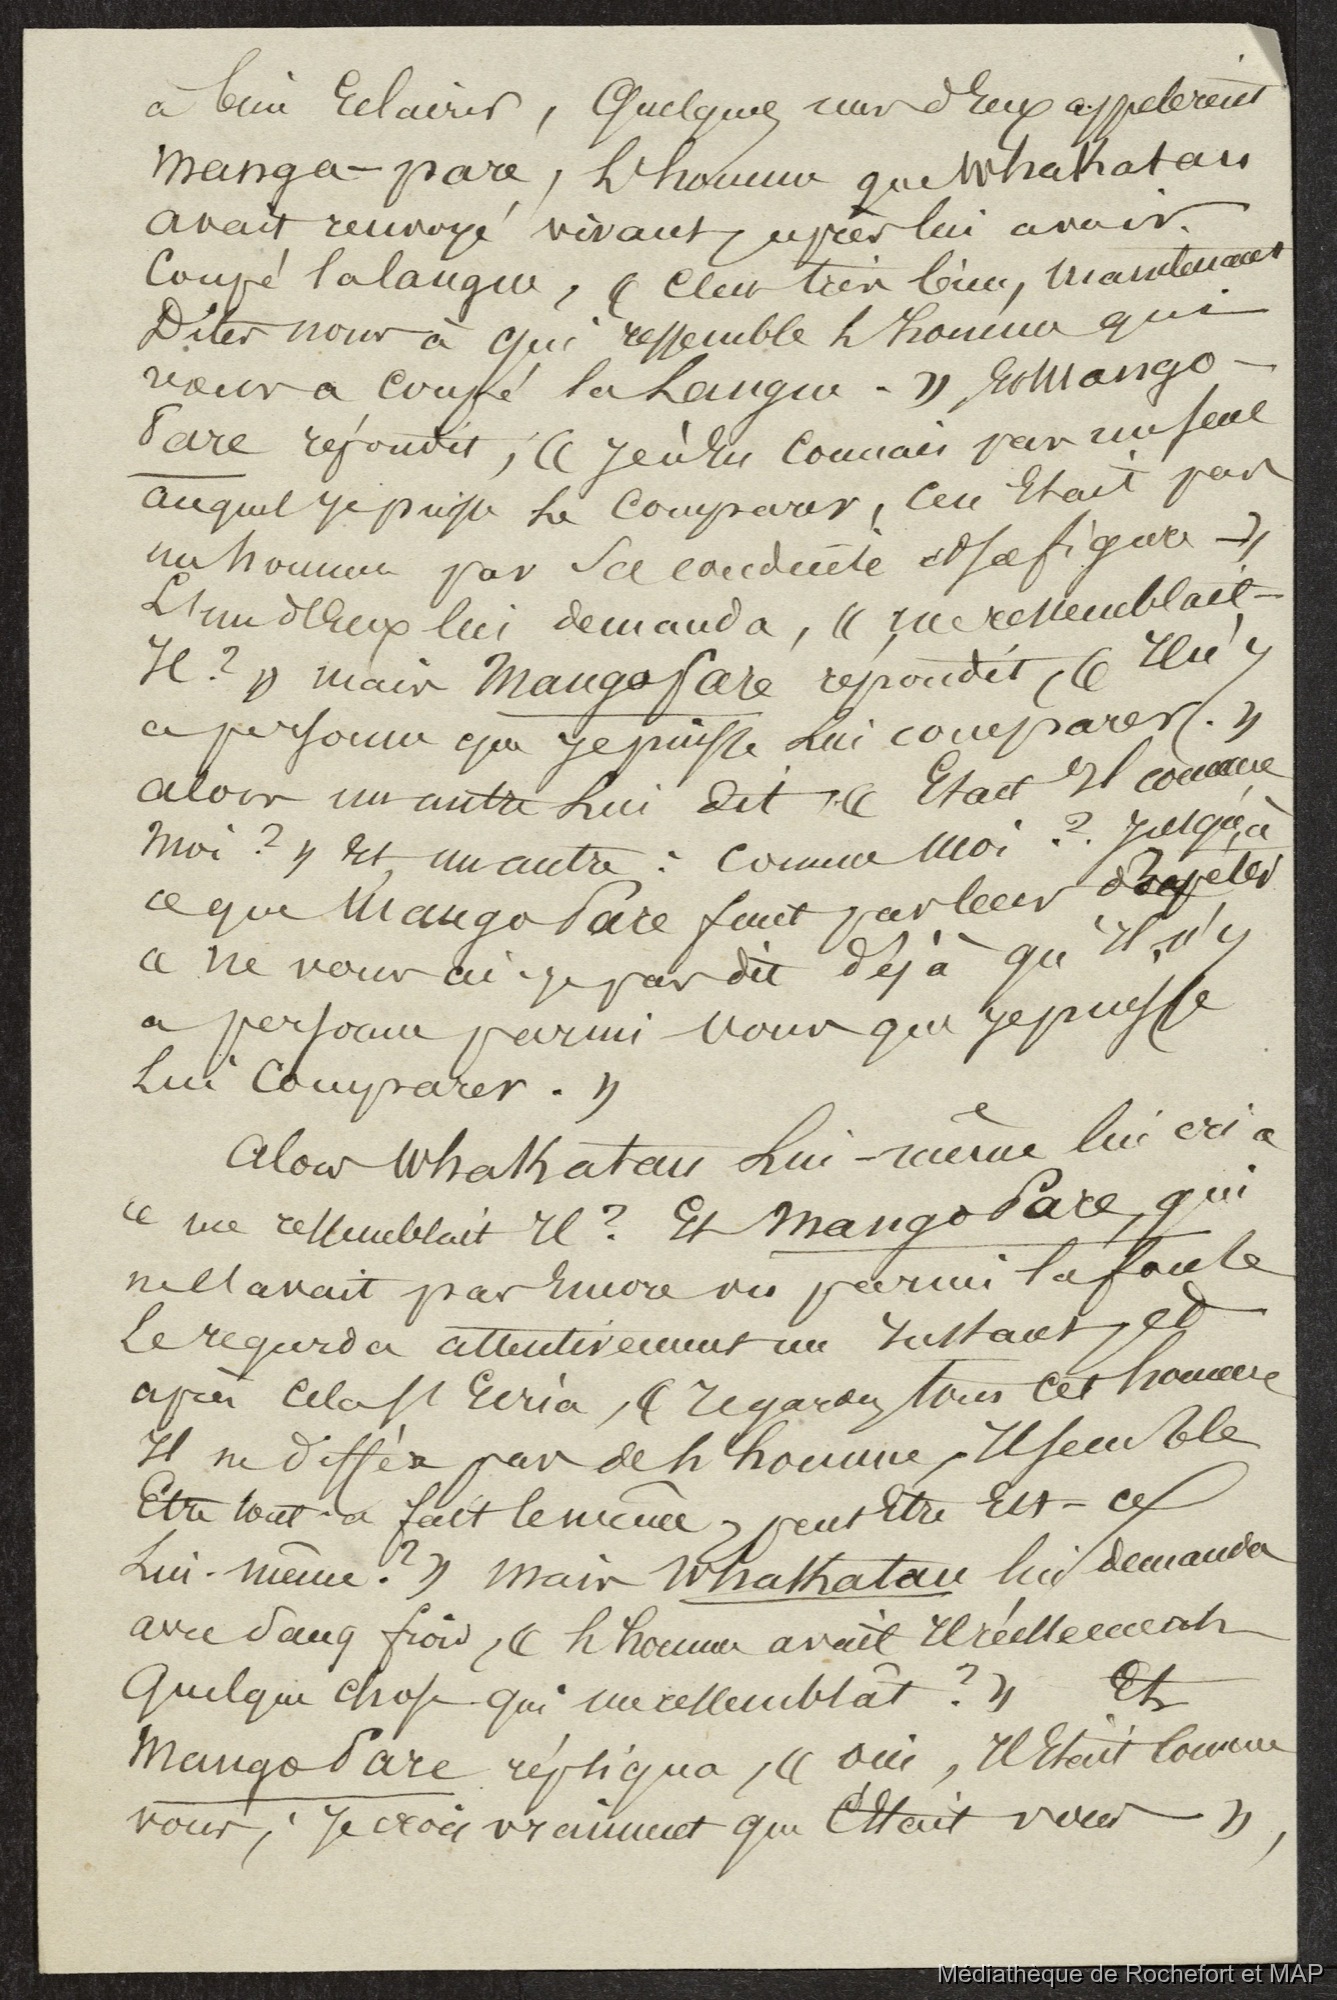 à bien Eclairer, Quelques uns d'Eux appelerent
Manga-pare, L'homme que Whakatau
avait renvoyé vivant, après lui avoir
Coupé la langue, « C'est très bien, maintenant
Dites nous à qui ressemble L'homme qui
vous a coupé la Langue. » Et Mango-
Pare répondit, « Je n'En connais pas un seul
auquel Je puisse Le Comparer, Ce n'Etait pas
un homme par Sa conduite et sa figure - »
L'un d'Eux lui demanda, « me ressemblait-
Il ? » mais Mango Pare répondit, « Il n'y
a personne que Je puisse Lui comparer. »
alors un autre Lui dit, « Etait Il comme
Moi ? » Et un autre : comme Moi ? Jusqu'à
ce que Mango Pare finit par leur répéter
« Ne vous ai-Je pas dit déjà qu'Il n'y
a personne parmi vous que Je puisse
Lui Comparer. »
Alors Whakatau Lui-même lui cria
« me ressemblait Il ? Et Mango Pare, qui
ne l'avait pas Encore vu parmi la foule
Le regarda attentivement un Instant, et
après cela s'Ecria, « regardez tous cet homme
Il ne diffère pas de L'homme, Il semble
Etre tout-à fait le même, peut Etre Est-ce
Lui-même ? » mais Whakatau lui demanda
avec Sang froid, « L'homme avait Il réellement
Quelque chose qui me ressemblât ? » Et
Mango Pare répliqua, « oui, Il Etait Comme
vous, Je crois vraiment que C'Etait vous »,
Médiathèque de Rochefort et MAP